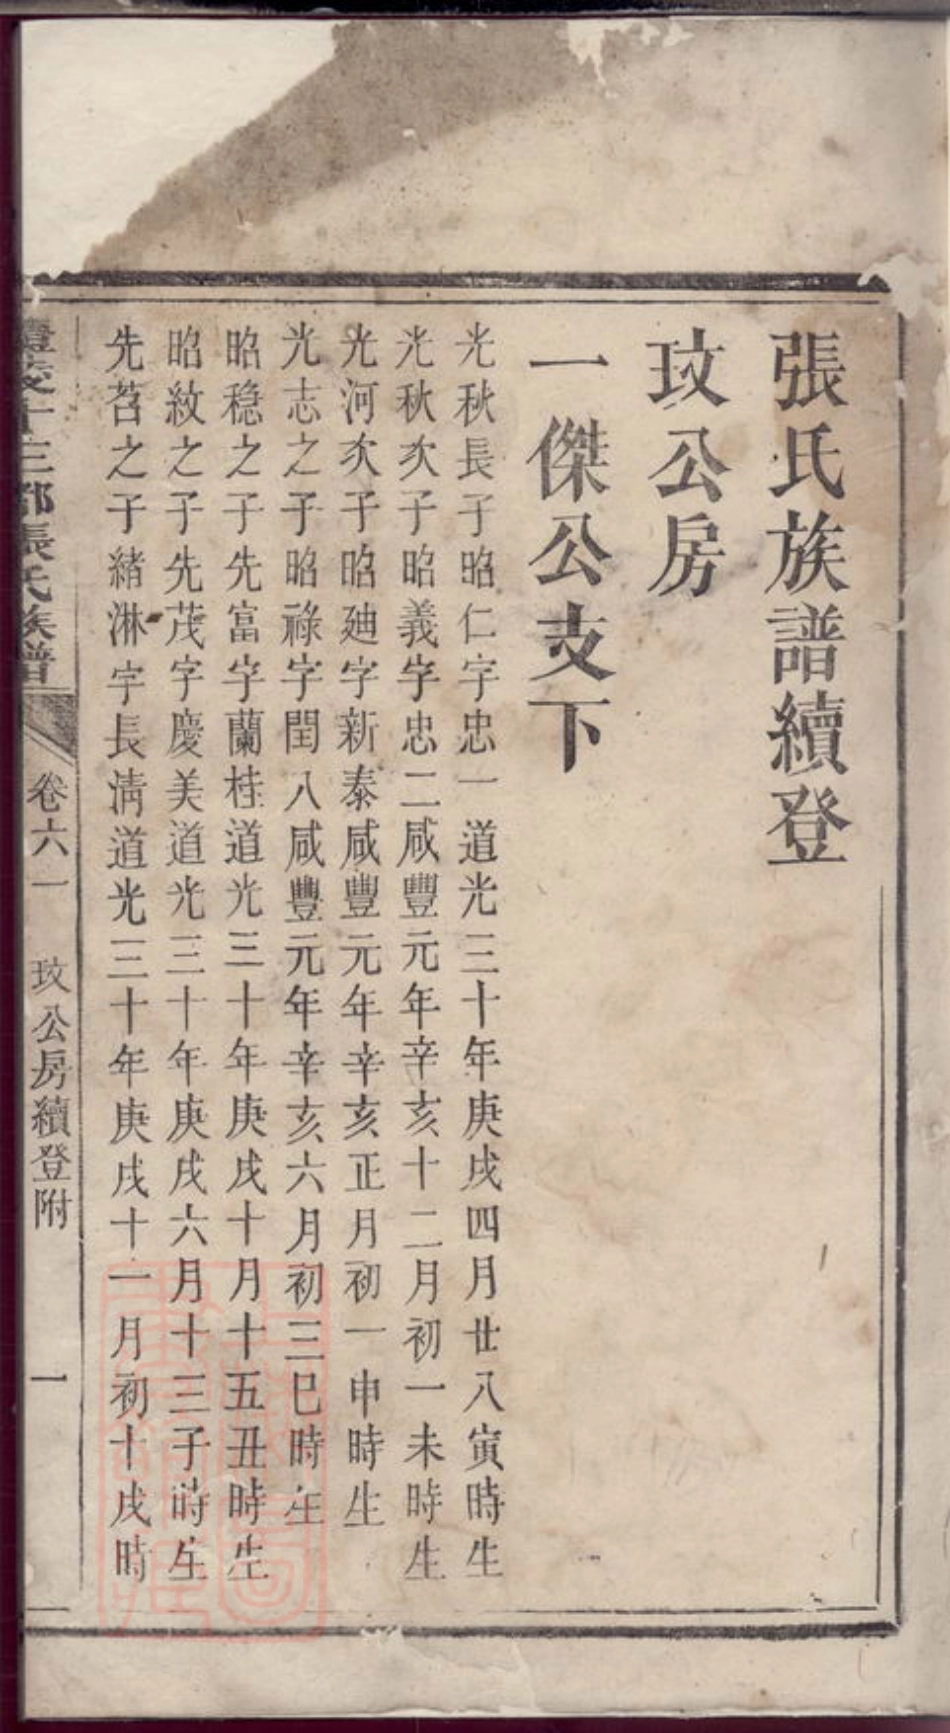 張氏族譜續登
玟公房
一傑公支下
光秋長子昭仁字忠一 道光三十年庚戌四月廿八寅時生
光秋次子昭義字忠二咸豐元年辛亥十二月初一未時生
光河次子昭廸字新泰咸豐元年辛亥正月初一申時生
光志之子昭祿字閏八咸豐元年辛亥六月初三巳時生
昭稳之子先富字蘭桂道光三十年庚戌十月十五丑時生
昭紋之子先茂字慶美道光三十年庚戌六月十三子時生
先苕之子緒淋字長淸道光三十年庚戌十一月初十戌時
醴陵十三都張氏族譜 卷六一 玟公房續登附 一